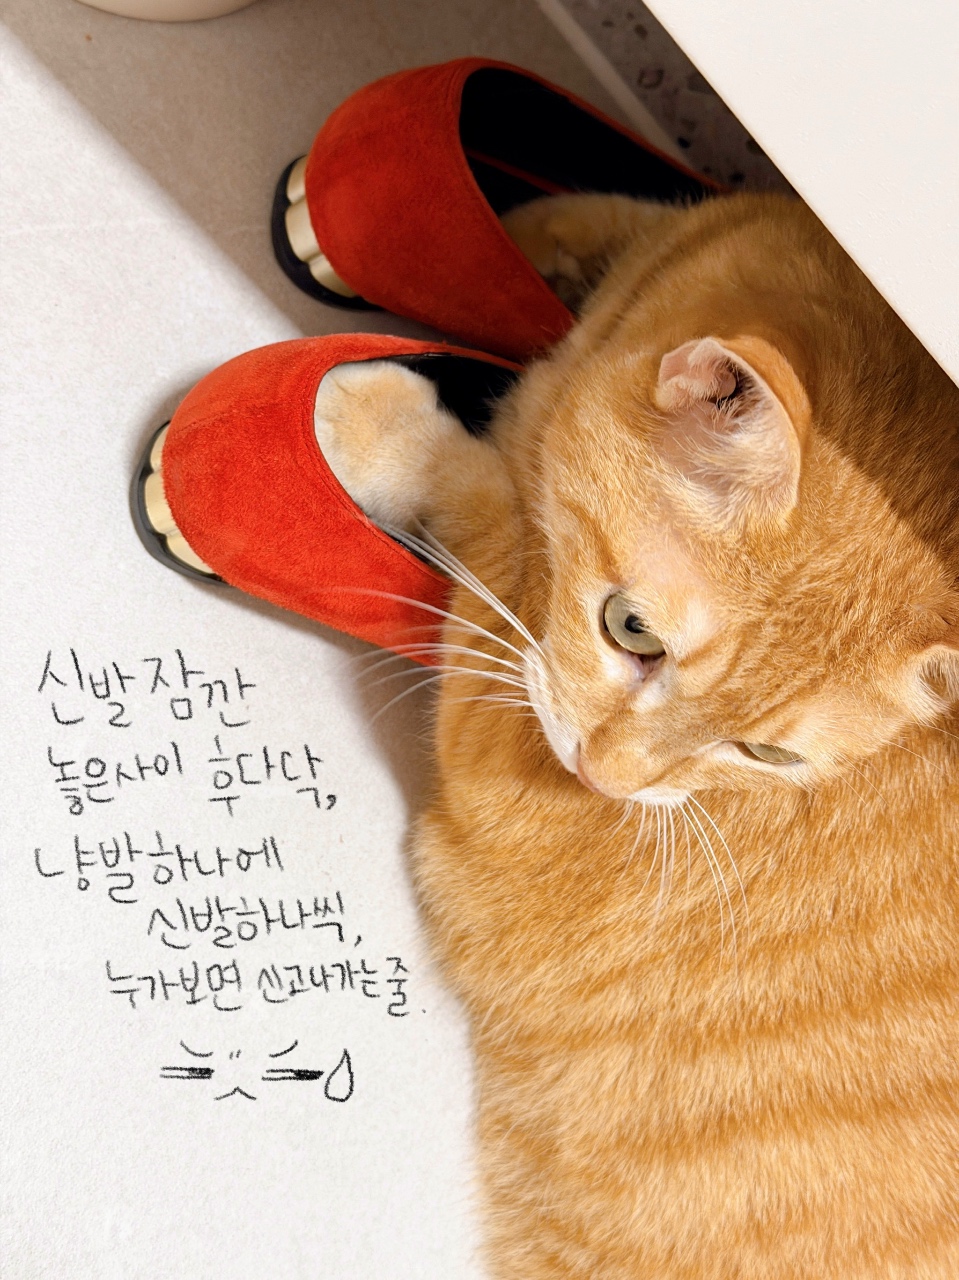 신발 잠깐
놓은사이 후다닥,
냥발하나에
신발하나씩,
누가보면 신고나가는줄.